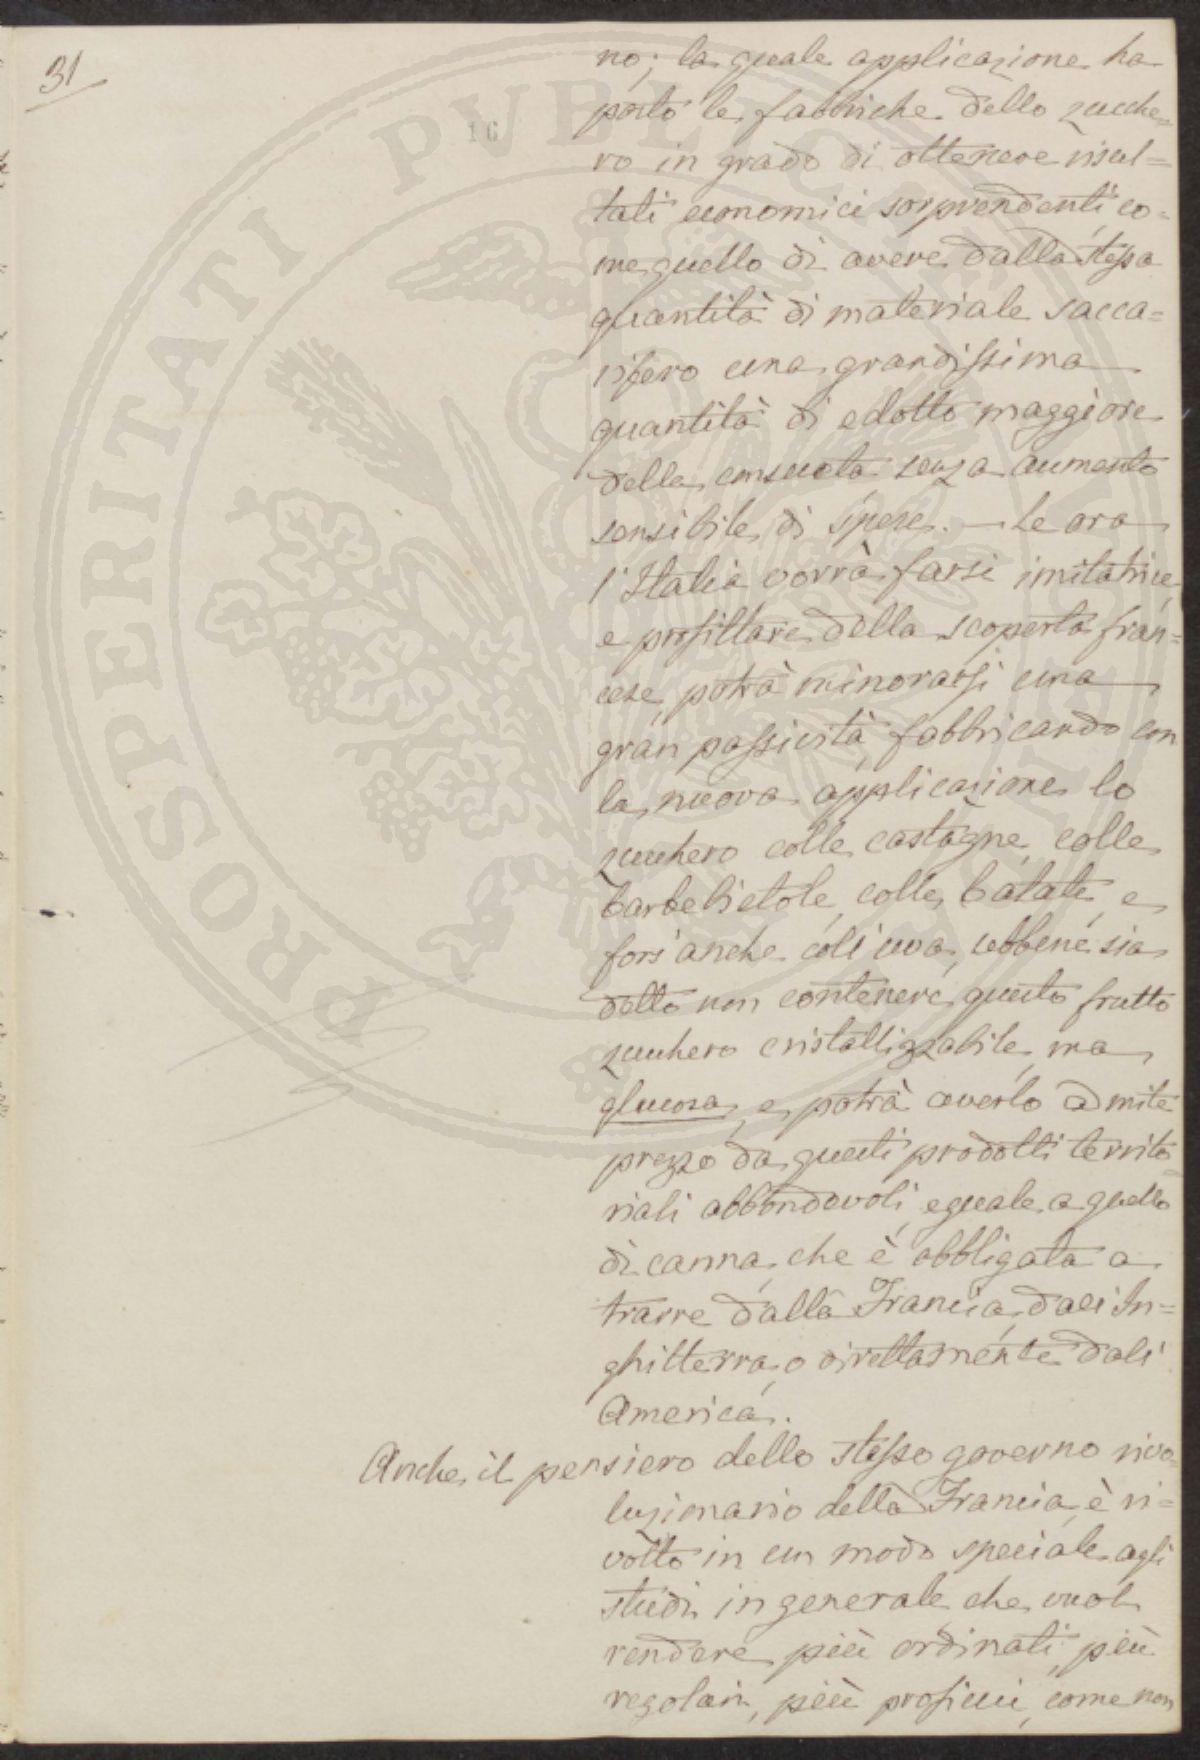 31
no; la quale applicazione ha
posto le fabbriche dello zucche=
ro in grado di ottenere risul=
tati economici sorprendenti co=
me quello di avere dalla stessa
quantità di materiale sacca=
rifero una grandissima
quantità di edotto maggiore
della consueta senza aumento
sensibile di spese. — Se ora
l'Italia vorrà farsi imitatrice
e profittare della scoperta fran=
cese, potrà minorarsi una
gran passività, fabbricando con
la nuova applicazione lo
zucchero colle castagne, colle
barbebietole, colle batate, e
fors'anche coll'uva, sebbene sia
detto non contenere questo frutto
zucchero cristallizzabile, ma
glucosa, e potrà averlo a mite
prezzo da questi prodotti territo=
riali abbondevoli, eguale a quello
di canna, che è obbligata a
trarre dalla Francia, dall'In=
ghilterra, o direttamente dall'
America.
Anche il pensiero dello stesso governo rivo=
luzionario della Francia, è ri=
volto in un modo speciale agli
studi in generale, che vuol
rendere più ordinati, più
regolari, più proficui, come non
16
PROSPERITATI PVBLICAE